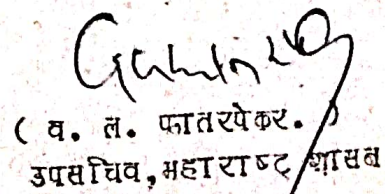 ( व. ल. फातरपेकर. )
उपसचिव, महाराष्ट्र शासन